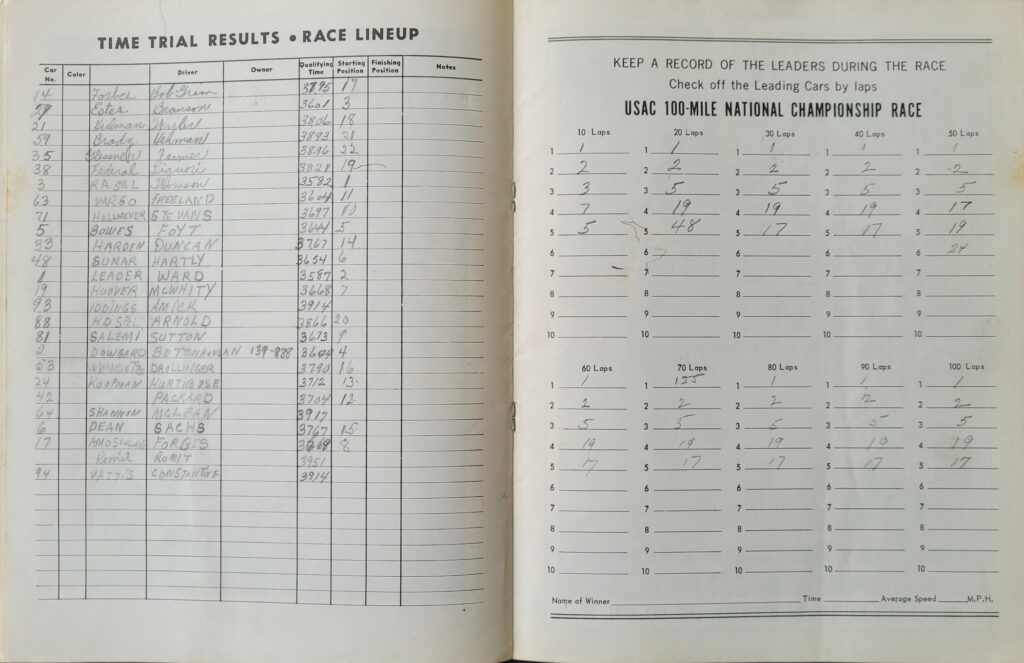 TIME TRIAL RESULTS • RACE LINEUP
Car No. Color Driver Owner Qualifying Time Starting Position Finishing Position Notes
14 Forbes Bob Grim 3895 17
Estes Branson 3601 3
21 3806 18
59 Brady Hehman 3893 21
35 Farmer 3896 22
38 Federal Liguori 3828 19
3 RA SRL 3582 1
63 VARGO FREELAND 3604 11
71 HALLMEYER STEVANS 3697 10
5 BOWES FOYT 5
33 HARDEN DUNCAN 3767 14
48 SUMAR HARTLY 3654 6
1 LEADER WARD 3587 2
19 HOOVER McWHITY 3668 7
93 IDDINGS AMICK 3914
88 ARNOLD 3866 20
81 SALEMI SUTTON 3673 9
2 DOWGARD 4
53 DROLLINGER 3790 16
24 KOOPMAN HURTUBISE 3712 13
42 PACKARD 3704 12
64 SHANNON McLEAN 3917
6 DEAN SACHS 3767 15
17 FORGES 8
ROMIT 3951
94 VATTIS CONSTANTINE 3914
KEEP A RECORD OF THE LEADERS DURING THE RACE
Check off the Leading Cars by laps
USAC 100-MILE NATIONAL CHAMPIONSHIP RACE
10 Laps 20 Laps 30 Laps 40 Laps 50 Laps
1 1 1 1 1 1 1 1 1 1
2 2 2 2 2 2 2 2 2 2
3 3 3 5 3 5 3 5 3 5
4 7 4 19 4 19 4 19 4 17
5 5 5 48 5 17 5 17 5 19
6 6 6 6 6 24
7 7 7 7 7
8 8 8 8 8
9 9 9 9 9
10 10 10 10 10
60 Laps 70 Laps 80 Laps 90 Laps 100 Laps
1 1 1 1 1 1 1 1 1
2 2 2 2 2 2 2 2 2 2
3 5 3 5 3 5 3 5 3 5
4 19 4 19 4 19 4 19 4 19
5 17 5 17 5 17 5 17 5 17
6 6 6 6 6
7 7 7 7 7
8 8 8 8 8
9 9 9 9 9
10 10 10 10 10
Name of Winner Time Average Speed M.P.H.